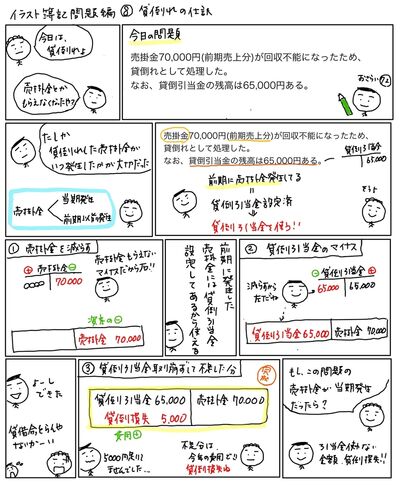 イラスト簿記問題編 ⑧ 貸倒れの仕訳
今日は、
貸倒れよ
売掛金とか
もらえなくなったやつ
今日の問題
売掛金70,000円(前期売上分)が回収不能になったため、
貸倒れとして処理した。
なお、貸倒引当金の残高は65,000円ある。
おさらい
たしか
貸倒れした売掛金が
いつ発生したかが大切だった
売掛金
当期発生
前期以前発生
売掛金70,000円(前期売上分)が回収不能になったため、
貸倒れとして処理した。
なお、貸倒引当金の残高は65,000円ある。
貸倒引当金
65,000
前期に売掛金発生してる
貸倒引当金設定済
貸倒引当金を使う!!
① 売掛金を減らす
⊕ 売掛金 ⊖
70,000
売掛金もらえない
マイナスだから右!!
資産の⊖
売掛金 70,000
前期に発生した
売掛金には貸倒引当金
設定してあるから使える
② 貸倒引当金のマイナス
⊖ 貸倒引当金 ⊕
65,000
65,000
減らすから
左だね
貸倒引当金 65,000
売掛金 70,000
よーし
できた
貸借合ってらんやないかーい
③ 貸倒引当金取り崩して不足した分
完成
貸倒引当金 65,000
売掛金 70,000
貸倒損失 5,000
費用⊕
5,000円足り
ませんでした…
不足分は、
今年の費用だ!!
貸倒損失ね
もし、この問題の
売掛金が当期発生
だったら?
引当金使わない
全額 貸倒損失!!